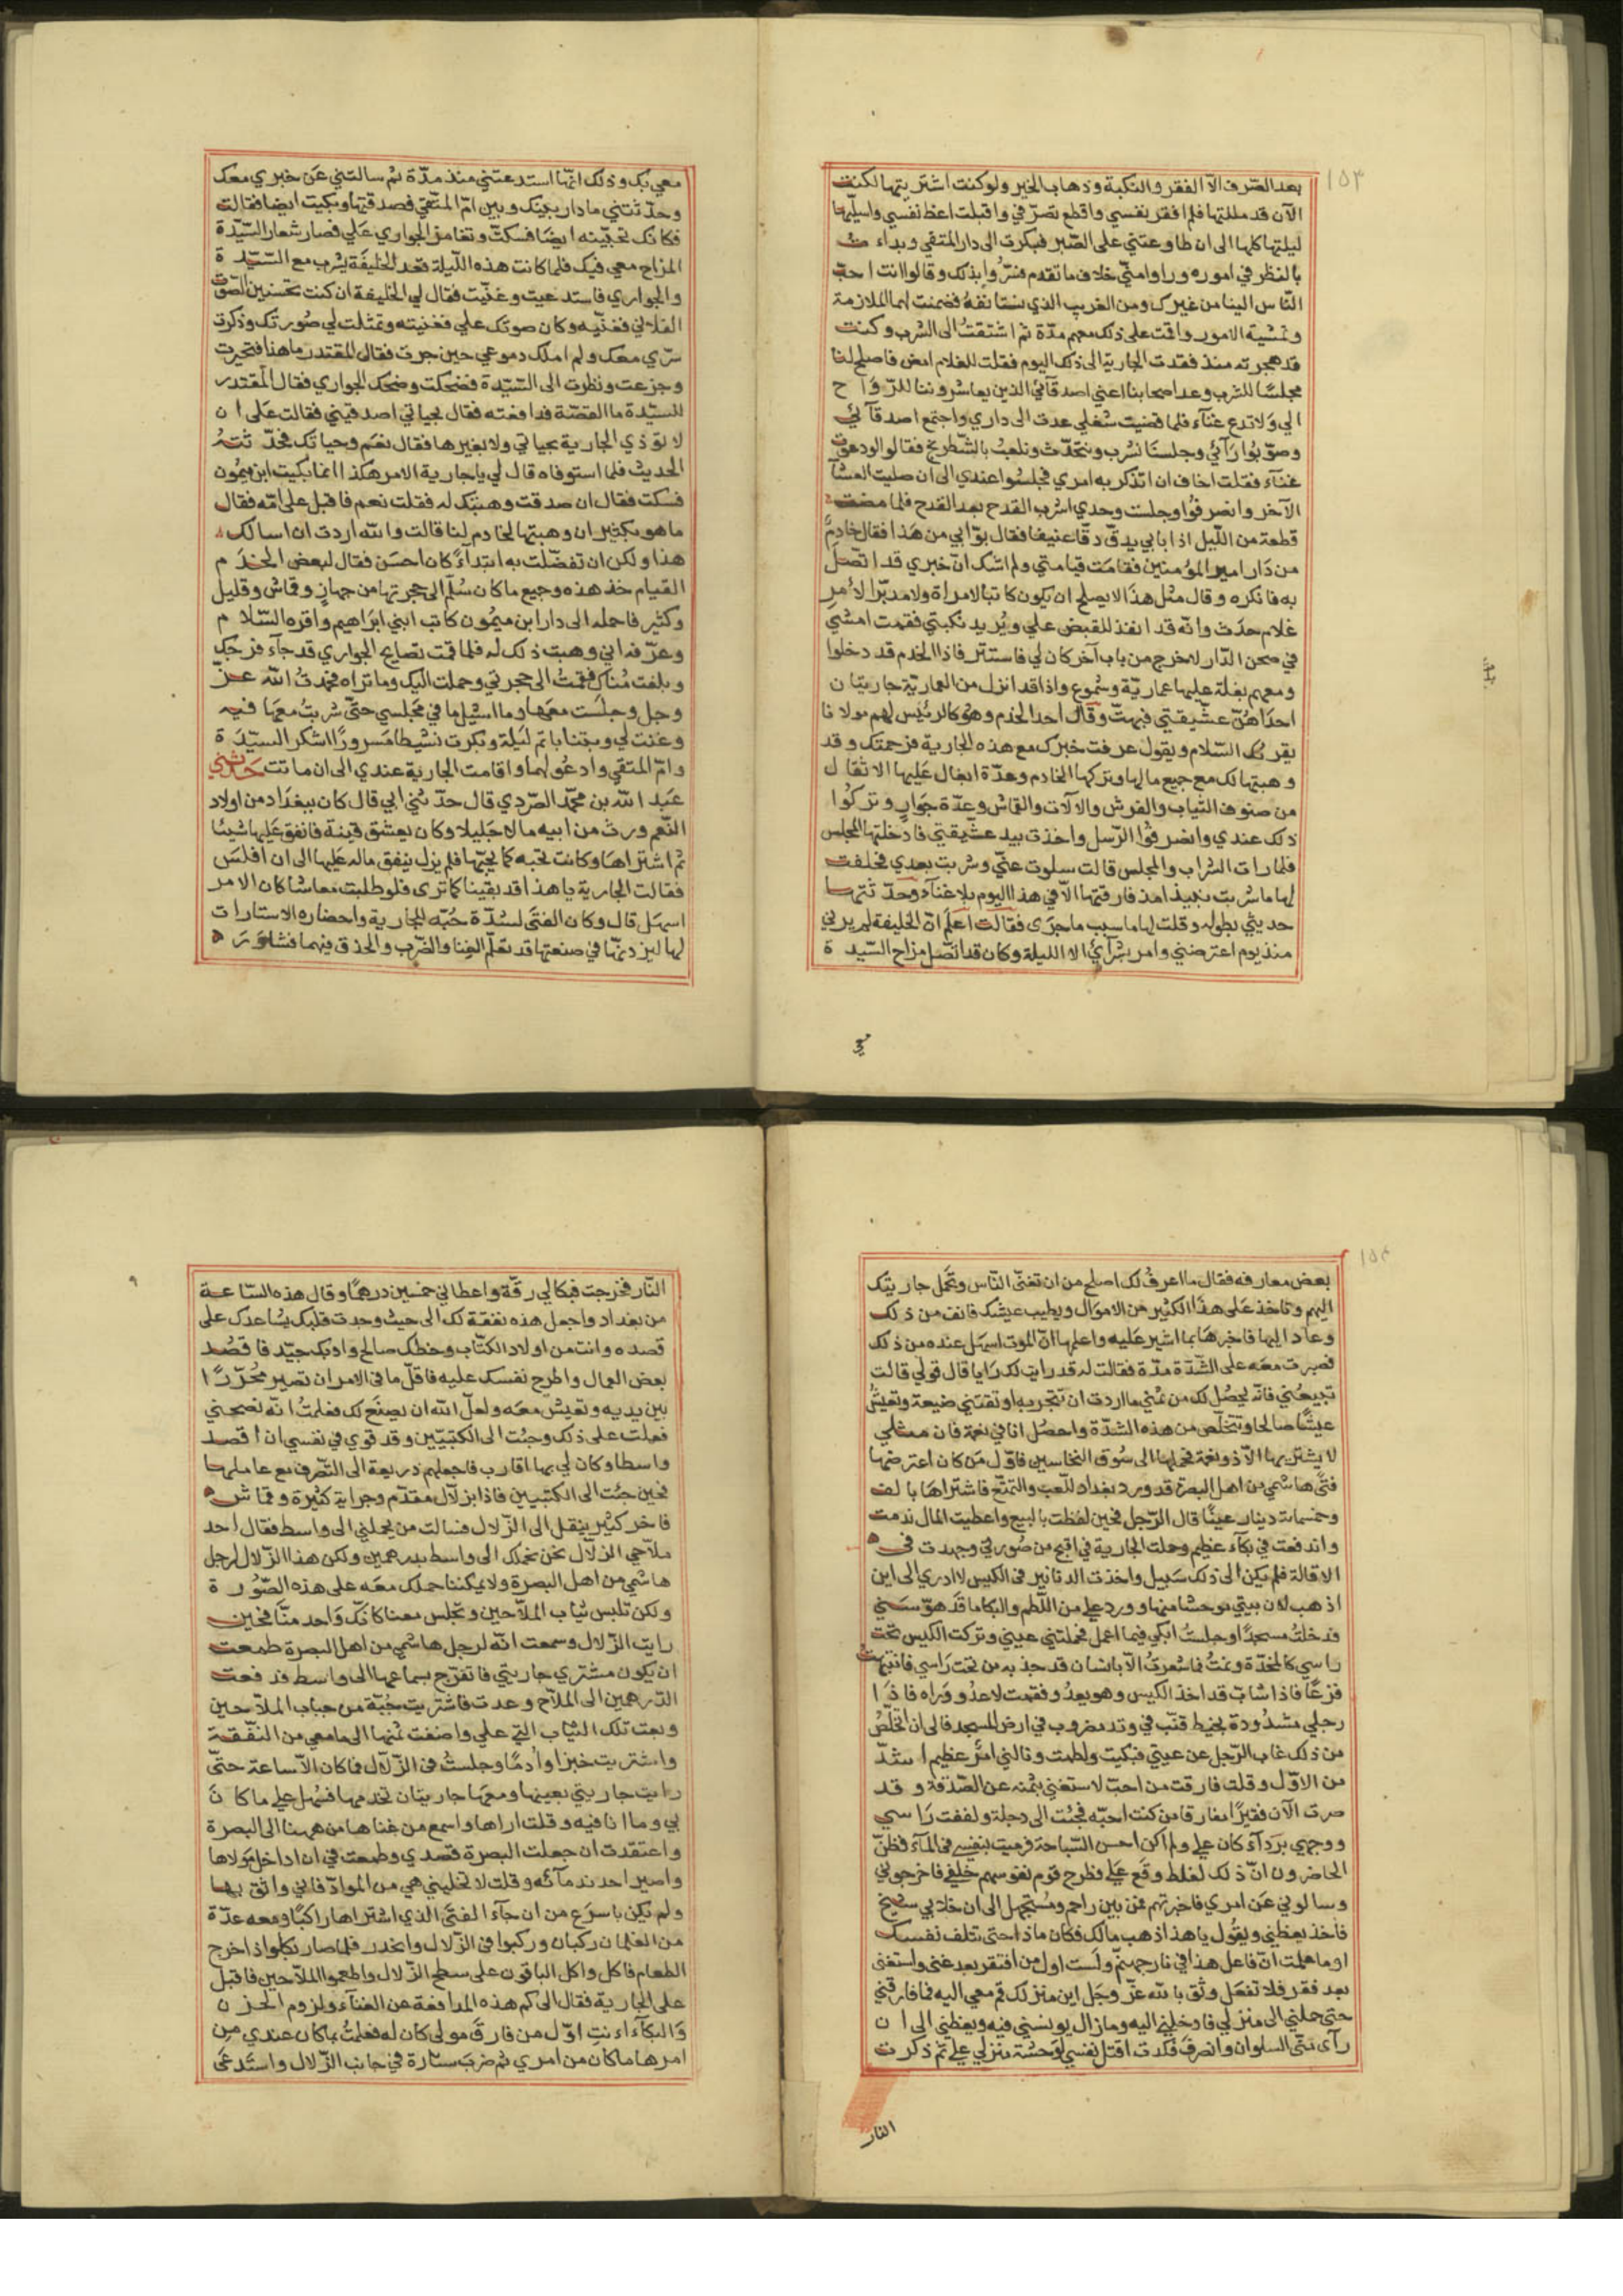 ١٥٣
بعد الصرف الا الفقر والنكبة وذهاب الخير ولو كنت اشتريتها لكنت
الآن قد مللتها فلم افقر نفسي واقطع تصرّفي واقبلت اعظ نفسي واسليها
ليلتها كلها الى ان طاوعتني على الصّبر فبكرت الى دار المتقي وبداءت
بالنظر في اموره وراوا منّي خلاف ما تقدم فسُرّوا بذلك وقالوا انت احبّ
النّاس الينا من غيرك ومن الغريب الذي نستانفهُ فضمنت لهما الملازمة
وتمشية الامور واقمت على ذلك معهم مدّة ثم اشتقتُ الى الشرب وكنت
قد هجرته منذ فقدت الجارية الى ذلك اليوم فقلت للغلام امض فاصلح لنا
مجلسًا للشرب وعد اصحابنا اعني اصدقآئي الذين يعاشروننا للرّواح
الي ولا تدع غنآء فلما قضيت شغلي عدت الى داري واجتمع اصدقآئي
وصوّبُوا رَآئي وجلسنا نشرب ونتحدّث ونلعبُ بالشّطرنج فقالوا لو دعوت
غنآء فقلت اخاف ان اتذكر به امري فجلسُوا عندي الى ان صليت العشآ
الآخر وانصرفُوا وجلست وحدي اشرب القدح بعد القدح فلما مضت
قطعة من اللّيل اذا بابي يدقّ دقّا عنيفا فقال بوّابي من هَذا فقال خادمٌ
من دَار امير المؤمنين فقامَت قيامتي ولم اشك انّ خبري قد اتّصل
به فانكره وقال مثل هذَا لا يصلح ان يكون كاتبا لامراة ولا مدبّرا لأمرِ
غلام حدَث وانّه قد انفذ للقبض علي ويُريد نكبتي فقمت امشي
في صحن الدّار لاخرج من باب آخر كان لي فاستتر فاذا الخدم قد دخلوا
ومعهم بغلة عليها عماريّة وشُموع واذا قد انزل من العماريّة جاريتان
احدَاهنّ عشّيقتي فبهتّ وقَال احد الخدم وهُو كالرئيس لهم مولانا
يقرئك السّلام ويقول عرفت خبرك مع هذه الجارية فرحمتك وقد
وهبتها لك مع جميع مالها وتركها الخادم وعدّة ابغال عَليها الاثقال
من صنوف الثياب والفرش والآلات والقماش وعدّة جَوارٍ وتركُوا
ذلك عندي وانصرفُوا الرّسل واخذت بيد عشّيقتي فادخلتها المجلس
فلما رات الشراب والمجلس قالت سلوت عنّي وشربت بعدي فحلفت
لها ما شربت نبيذا مذ فارقتها الّا في هذا اليوم بلا غنآء وحدّثتها
حديثي بطوله وقلت لها ما سبب ما جرَى فقالت اعلم انّ الخليفة لم يرني
منذ يوم اعترضني وامر بشرآئي الا الليلة وكان قد اتّصل مزاح السّيدة
معي
معي بك وذلك انّها استدعتني منذ مدّة ثم سالتني عن خبري معك
وحدّثتني ما دار بينك وبين امّ المتقي فصدقتها وبكيت ايضا فقالت
فكانك تحبّينه ايضًا فسكتّ وتغامز الجواري عَلي فصار شعار السّيّدة
المزاح معي فيك فلما كانت هذه اللّيلة قعد الخليفَة يشرب مع السّيّدة
والجواري فاستدعيت وغنّيت فقال لي الخليفة ان كنت تحسنين الصّوت
الفلاني فغنّيه وكان صوتك علي فغنيته وتمثلت لي صُورتك وذكرت
شربي معك ولم املك دموعي حين جرت فقال المقتدر ما هذا فتحيرت
وجزعت ونظرت الى السّيّدة فضحكت وضحك الجواري فقال المقتدر
للسيّدة ما القصّة فدافعته فقال بحياتي اصدقيني فقالت على ان
لا تؤذي الجارية بحياتي ولا بغيرها فقال نعَم وحياتك فحدّثتهُ
الحديث فلما استوفاه قال لي يا جارية الامر هكذا انما بكيت ابن ميمُون
فسكت فقال ان صدقت وهبتك له فقلت نعم فاقبل على امّه فقال
ما هو بكثير ان وهبتها لخادم لنا قالت والله اردت ان اسالك
هذا ولكن ان تفضّلت به ابتدآءً كان احسَن فقال لبعض الخدم
القيام خذ هذه وجميع ما كان سُلّم الى حجرتها من جهازٍ وقماش وقليل
وكثير فاحمله الى دار ابن ميمُون كاتب ابني ابرَاهيم واقره السّلام
وعرّفه اني وهبت ذلك له فلما قمت تصايح الجواري قد جآء فرحك
وبلغت مُناك فقمتُ الى حجرتي وحملت اليك وما تراه فحمدتُ الله عزّ
وجل وجلسَت معَها وما اشيل ما في مَجلسي حتّى شربتُ معَها فيه
وغنت لي وبتنا باتم لَيلة وبكرت نشيطا مَسرورًا اشكر السيّدة
وامّ المتقي وادعُو لهما واقامت الجارية عندي الى ان ماتت حَدّثني
عَبد الله بن محمّد الصّرَوي قال حدّثني ابي قال كان ببغدَاد من اولاد
النّعم ورث من ابيه مالا جَليلا وكان يعشق قينة فانفق عَليها شيئا
ثم اشتراهَا وكانت تحبه كما يحبّها فلم يزل ينفق ماله عَليها الى ان افلسَ
فقالت الجارية يا هذا قد بقينا كما ترى فلو طلبت معاشا كان الامر
اسهل قال وكان الفتَى لشدّة حُبّه للجارية واحضاره الاستارات
لها ليزدنهّا في صنعتها قد تعلّم الغنا والضّرب والحذق فيهما فشاوَرَ
١٥٤
بعض معارفه فقال ما اعرفُ لك اصلح من ان تغنّى النّاس وتحمل جاريتك
اليهم وتاخذ عَلى هذا الكثير من الاموَال ويطيب عيشك فانف من ذلك
وعاد اليها فاخبرهَا بما اشير عَليه واعلمها انّ الموت اسهَل عنده من ذلك
فصبرت معَه على الشّدّة مدّة فقالت له قد رايت لك رَايا قال قولي قالت
تبيعُني فانّه يحصُل لك من ثمني ما اردت ان تتجر به او تقتني ضيعة وتعيشُ
عيشًا صالحا وتتخلّص من هذه الشدّة واحصُل انا في نعمة فان مثلي
لا يشتريها الّا ذو نعمة فحملها الى سُوق النخاسين فاوّل مَن كان اعترضها
فتًى هاشمي من اهل البصرة قد ورد بغداد للّعب والتمتّع فاشتراهَا بالف
وخمسمائة دينار عينًا قال الرّجل فحين لفظت بالبيع واعطيت المال ندمت
واندفعت في بكآء عظيم وحملت الجارية في اقبح من صُورتي وجهدت في
الاقالة فلم يكن الى ذلك سَبيل واخذت الدنانير في الكيس لا ادري الى اين
اذهب لان بيتي موحشا منها وورد علي من اللّطم والبكا ما قد هوّسَني
فدخلتُ مسجدًا وجلستُ ابكي فيما اعمل فحملتني عيني وتركت الكيس تحت
راسي كالمخدّة ونمتُ فما شعرتُ الّا بانسان قد جذبه من تحت رَاسي فانتبهتُ
فزعًا فاذا شابّ قد اخذ الكيس وهو يعدُو فقمت لاعدُو وَراه فاذَا
رجلي مشدُودة بخيط قنّب في وتد مضروب في ارض المسجد فالى ان اتخلّصُ
من ذلك غاب الرّجل عن عيني فبكيت ولطمت ونالني امرٌ عظيم اشدّ
من الاوّل وقلت فارقت من احبّ لاستغني بثمنه عن الصّدقة وقد
صرت الآن فقيرًا مفارقا من كنت احبّه فجئت الى دجلة ولففت رَاسي
ووجهي برَدآء كان علي ولم اكن احسن السّباحة فرميت بنفسي في المآء فظنّ
الحاضرون انّ ذلك لغلط وقَع عَلي فطرح قوم نفوسهم خلفي فاخرجوني
وسالوني عَن امري فاخبرتهم فمن بين راحمٍ ومُستجهل الى ان خلا بي شيخ
فاخذ يعظني ويقُول يا هذا ذهب مالك فكان ماذا حتى تتلف نفسك
اوما علمت انّ فاعل هذا في نار جهنّم ولَست اول من افتقر بعد غنى واستغنى
بعد فقر فلا تفعَل وثق بالله عزّ وجَل اين منزلك قم معي اليه فما فارقني
حتى حملني الى منزلي فادخلني اليه وما زال يونسني فيه ويعظني الى ان
رآى منّي السلوان وانصرفَ فكدت اقتل نفسي لوَحشة منزلي علي ثم ذكرت
النار
النّار فخرجت فبكا لي رقّة واعطاني خمسين درهمًا وقال هذه السّاعة
من بغداد واجعل هذه نفقة لك الى حيث وجدت قلبك يسَاعدك على
قصده وانت من اولاد الكتّاب وخطك صالح وادبك جيّد فاقصُد
بعض العمال واطرح نفسك عليه فاقلّ ما في الامر ان تصير مُحرّرًا
بين يديه وتعيش معَه ولعلّ الله ان يصنَع لك فعلمتُ انّه نصحني
فعملت على ذلك وجئت الى الكتبيّين وقد قوي في نفسي ان اقصد
واسطا وكان لي بها اقارب فاجعلهم ذريعة الى التّصرف مع عاملها
فحين جئت الى الكتبيين فاذا بزلّال مقدّم وجراية كثيرة وقماش
فاخر كثير ينقل الى الزلّال فسالت من يحملني الى واسط فقال احد
ملّاحي الزلّال نحن نحملك الى واسط بدرهمين ولكن هذا الزّلال لرجل
هاشمي من اهل البصرة ولا يمكننا حملك معَه على هذه الصّورة
ولكن تلبس ثياب الملاّحين وتجلس معنا كانّك وَاحد منّا فحين
رايت الزّلال وسمعت انّه لرجل هاشمي من اهل البصرة طمعت
ان يكون مشتري جاريتي فاتفرّج بسماعها الى واسط فدفعت
الدّرهمين الى الملاّح وعدت فاشتريت جُبّة من جباب الملاّحين
وبعت تلك الثياب التي علي واضفت ثمنها الى ما معي من النّفقة
واشتريت خبزا وادمًا وجلستُ في الزّلّال فما كان الّا ساعة حتّى
رايت جاريتي بعينها ومعَها جاريتان تخدمها فسهل علي ما كانَ
بي وما انا فيه وقلت اراها واسمع من غناها من ههنا الى البصرة
واعتقدت ان جعلت البصرة قصدي وطمعت في ان اداخل مَولاها
واصير احد ندمآئه وقلت لا تخليني هي من الموادّ فاني واثق بها
ولم يكن باسرَع من ان جآء الفتَى الذي اشتراها راكبًا ومعه عدّة
من الغلمان ركبان وركبوا في الزّلال وانحدر فلما صار بكلواذ اخرج
الطعام فاكل واكل الباقون على سطح الزّلال واطعموا الملاّحين فاقبل
على الجارية فقال الى كم هذه المدافعة عن الغنآء ولزوم الحزن
وَالبكآء انتِ اوّل من فارقَ مولى كان له فعلمتُ ما كان عندي مِن
امرها ما كان من امري ثم ضربَ ستارة في جانب الزّلال واستَدعَى